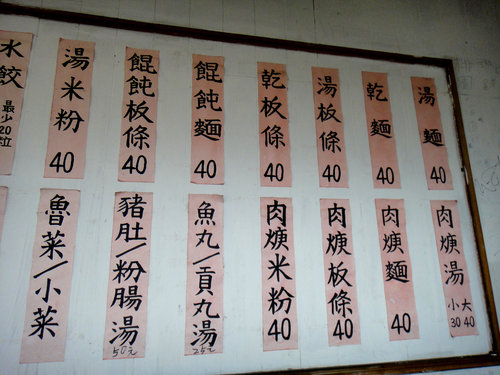 湯麵 40
乾麵 40
湯板條 40
乾板條 40
餛飩麵 40
餛飩板條 40
湯米粉 40
水餃 最少20粒
肉焿湯 小30 大40
肉焿麵 40
肉焿板條 40
肉焿米粉 40
魚丸/貢丸湯 25元
豬肚/粉腸湯 50元
魯菜/小菜